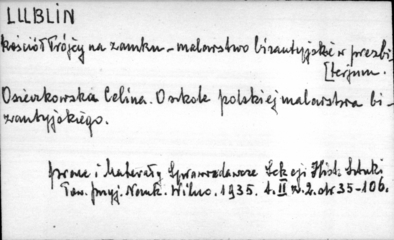 LUBLIN
Kościół Trójcy na zamku - malarstwo bizantyjskie w prezbi-
[terjum.
Osieczkowska Celina. O szkole polskiej malarstwa bi-
zantyjskiego.
Prace i Materały Sprawozdawcze Sekcji Hist. Sztuki
Tow. Przyj. Nauk. Wilno. 1935. t. II z. 2. str 35-106.